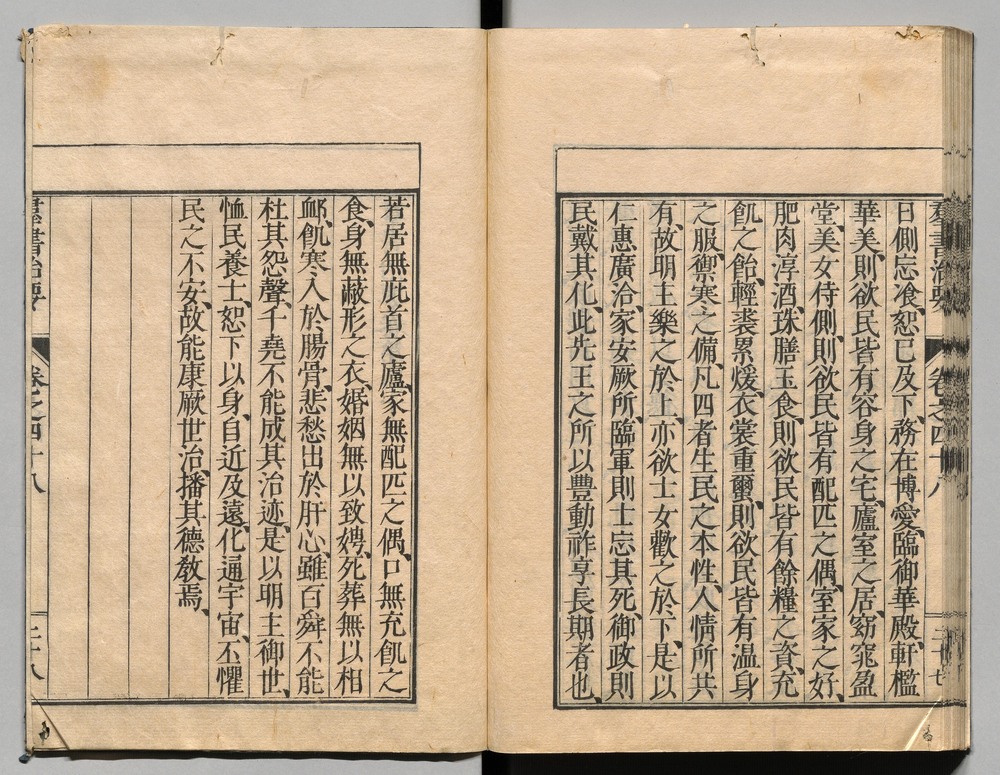 羣書治要 卷之四十八 二十七
日側忘飡、恕已及下、務在博愛、臨御華殿、軒檻
華美、則欲民皆有容身之宅、廬室之居、窈窕盈
堂、美女侍側、則欲民皆有配匹之偶、室家之好、
肥肉淳酒、珠膳玉食、則欲民皆有餘糧之資、充
飢之飴、輕裘累煖、衣裳重蠒、則欲民皆有温身
之服、禦寒之備、凡四者生民之本性、人情所共
有、故明主樂之於上、亦欲士女歡之於下、是以
仁惠廣洽、家安厥所、臨軍則士忘其死、御政則
民戴其化、此先王之所以豐動祚享長期者也、
若居無庇首之廬、家無配匹之偶、口無充飢之
食、身無蔽形之衣、婚姻無以致娉、死葬無以相
卹、飢寒入於腸骨、悲愁出於肝心、雖百舜不能
杜其怨聲、千堯不能成其治迹、是以明主御世、
恤民養士、恕下以身、自近及遠、化通宇宙、丕懼
民之不安、故能康厥世治、播其德敎焉、
羣書治要 卷之四十八 二十八